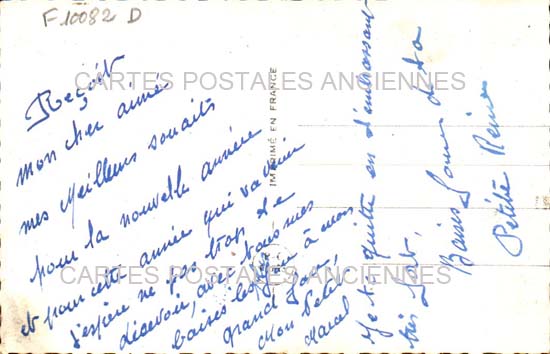 F10082 D
Reçoit
mon cher aimé
mes Meilleurs souhaits
pour la nouvelle année
et pour cette année qui va venir
j'espère ne pas trop te
décevoir, avec tous mes
baisers
grand
Mon Petit
Je te quitte en t'embrassant
très fort,
Bons baisers de ta
Petite Reine
IMPRIMÉ EN FRANCE
CARTES POSTALES ANCIENNES
CARTES POSTALES ANCIENNES